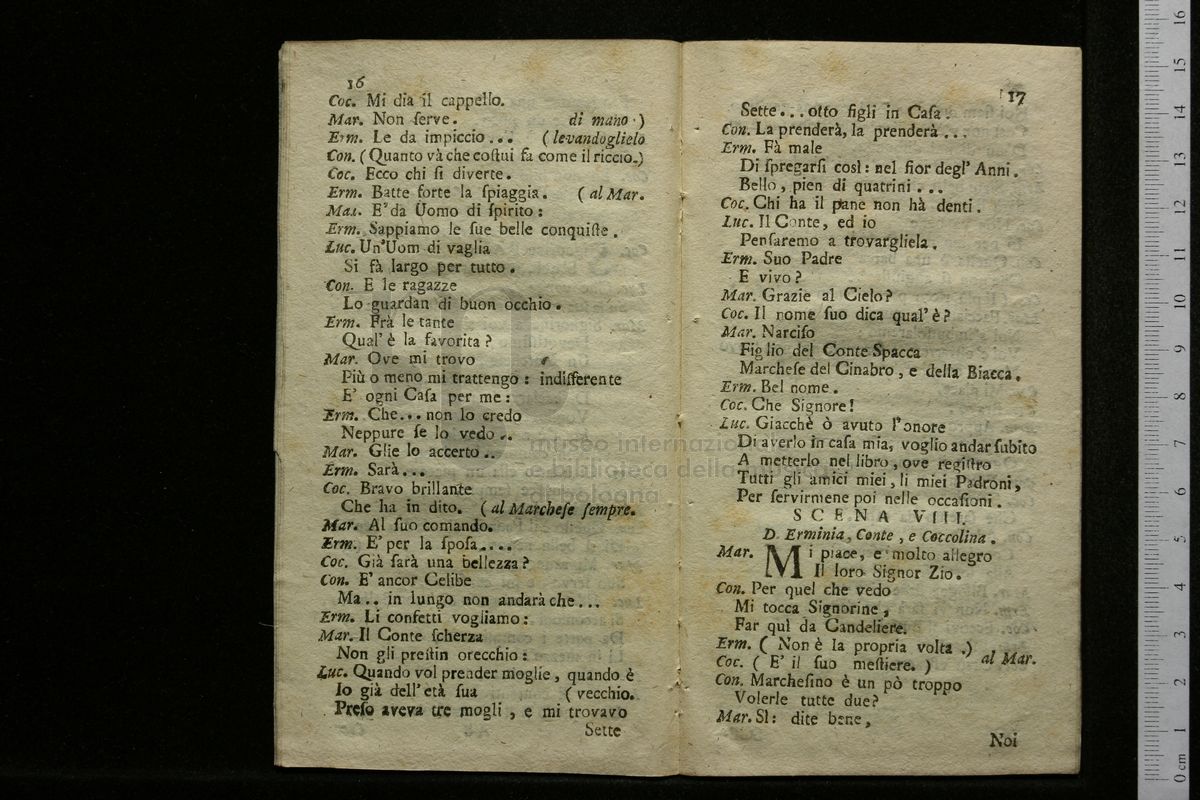 16
Coc. Mi dia il cappello.
Mar. Non ſerve. di mano.)
Erm. Le da impiccio... (levandoglielo
Con. (Quanto và che coſtui fa come il riccio.)
Coc. Ecco chi ſi diverte.
Erm. Batte forte la ſpiaggia. (al Mar.
Mar. E' da Uomo di ſpirito:
Erm. Sappiamo le ſue belle conquiſte.
Luc. Un'Uom di vaglia
Si fà largo per tutto.
Con. E le ragazze
Lo guardan di buon occhio.
Erm. Frà le tante
Qual'è la favorita?
Mar. Ove mi trovo
Più o meno mi trattengo: indifferente
E' ogni Caſa per me:
Erm. Che... non lo credo
Neppure ſe lo vedo..
Mar. Glie lo accerto..
Erm. Sarà...
Coc. Bravo brillante
Che ha in dito. (al Marcheſe ſempre.
Mar. Al ſuo comando.
Erm. E' per la ſpoſa....
Coc. Già ſarà una bellezza?
Con. E' ancor Celibe
Ma.. in lungo non andarà che...
Erm. Li confetti vogliamo:
Mar. Il Conte ſcherza
Non gli preſtin orecchio:
Luc. Quando vol prender moglie, quando è
Io già dell'età ſua (vecchio.
Preſo aveva tre mogli, e mi trovavo
Sette
17
Sette...otto figli in Caſa.
Con. La prenderà, la prenderà...
Erm. Fà male
Di ſpregarſi così: nel fior degl'Anni.
Bello, pien di quatrini...
Coc. Chi ha il pane non hà denti.
Luc. Il Conte, ed io
Penſaremo a trovargliela.
Erm. Suo Padre
E vivo?
Mar. Grazie al Cielo?
Coc. Il nome ſuo dica qual'è?
Mar. Narciſo
Figlio del Conte Spacca
Marcheſe del Cinabro, e della Biacca.
Erm. Bel nome.
Coc. Che Signore!
Luc. Giacchè ò avuto l'onore
Di averlo in caſa mia, voglio andar ſubito
A metterlo nel libro, ove regiſtro
Tutti gli amici miei, li miei Padroni,
Per ſervirmene poi nelle occaſioni.
SCENA VIII.
D. Erminia, Conte, e Coccolina.
Mar. Mi piace, e molto allegro
Il loro Signor Zio.
Con. Per quel che vedo
Mi tocca Signorine,
Far quì da Candeliere.
Erm. (Non è la propria volta.)
Coc. (E' il ſuo meſtiere.) al Mar.
Con. Marcheſino è un pò troppo
Volerle tutte due?
Mar. Sì: dite bene,
Noi
museo internazio
e biblioteca della
di bologna
0 cm 1 2 3 4 5 6 7 8 9 10 11 12 13 14 15 16